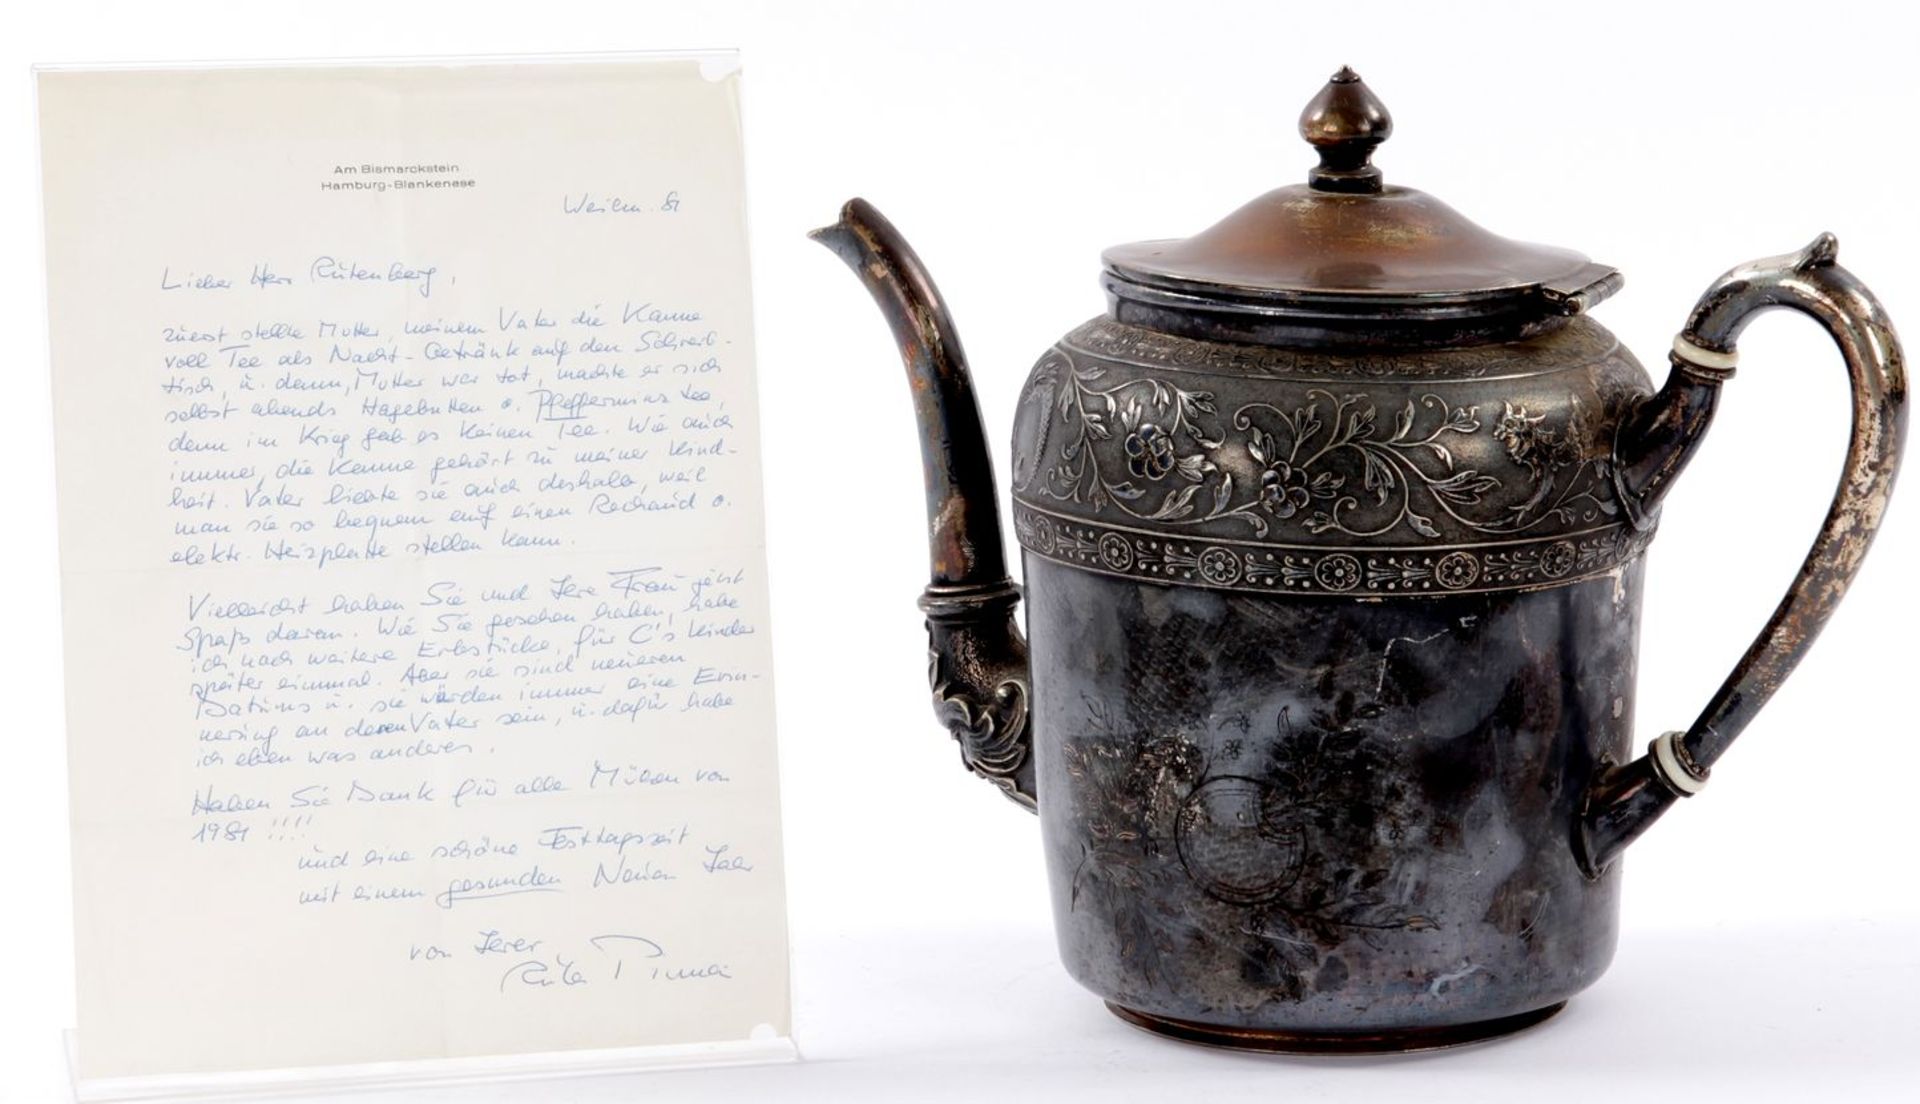 Am Bismarckstein
Hamburg-Blankenese
Weihn. 81
Lieber Herr Rutenberg,
zuerst stellte Mutter, meinem Vater die Kanne
voll Tee als Nacht-Getränk auf den Schreib-
tisch, u. dann, Mutter war tot, machte er sich
selbst abends Hagebutten o. Pfefferminztee,
denn im Krieg gab es keinen Tee. Wie auch
immer, die Kanne gehört zu meiner Kind-
heit. Vater liebte sie auch deshalb, weil
man sie so bequem auf einen Rechaud o.
elektr. Heizplatte stellen kann.
Vielleicht haben Sie und Ihre Frau jetzt
Spaß daran. Wie Sie gesehen haben, habe
ich noch weitere Erbstücke, für C's Kinder
später einmal. Aber sie sind neueren
Datums u. sie würden immer eine Erin-
nerung an deren Vater sein, u. dafür habe
ich eben was anderes.
Haben Sie Dank für alle Mühen von
1981 !!!!
und eine schöne Festtagszeit
mit einem gesunden Neuen Jahr
von Ihrer